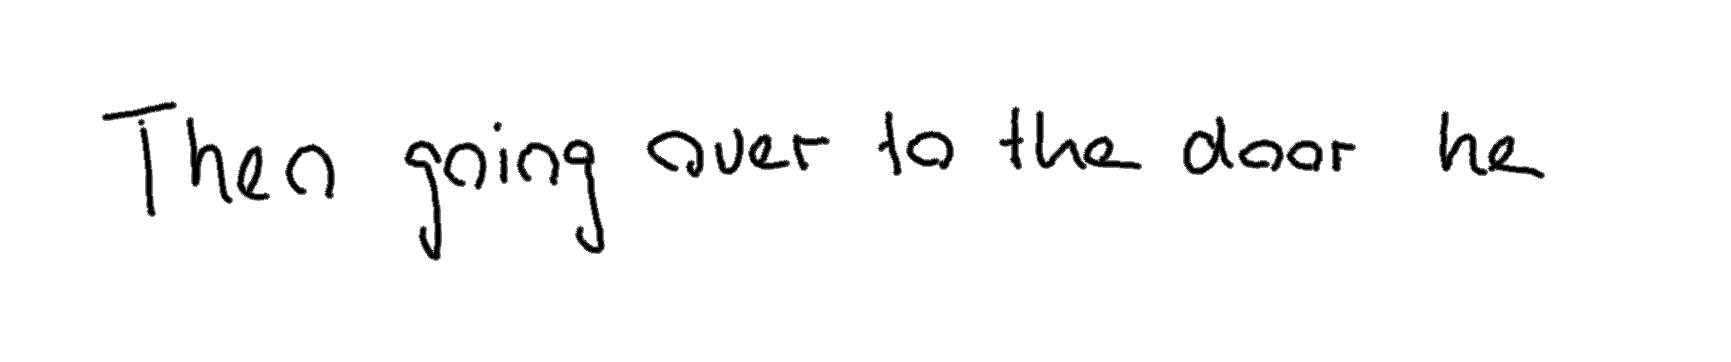 Then going over to the door he